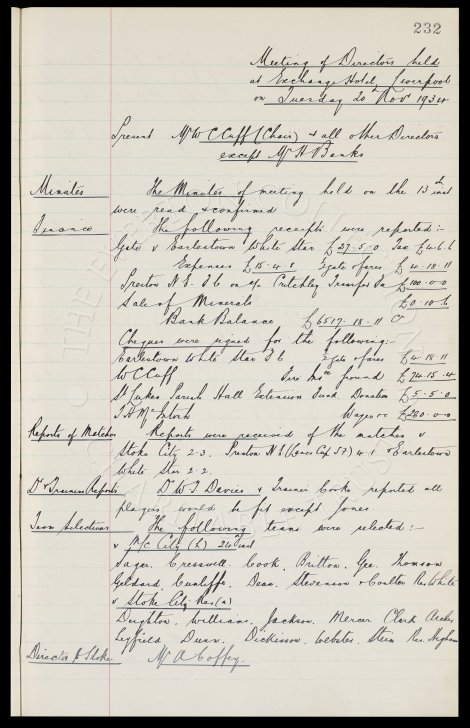 232
Meeting of Directors held
at Exchange Hotel, Liverpool
on Tuesday 20 Novr 1934
Present Mr W C Cuff (Chair) & all other Directors
except Mr H Banks
Minutes The Minutes of meeting held on the 13th inst
were read & confirmed
Finance The following receipts were reported :-
Gate v Earlestown White Star £27.5.0 Tax £4.6.6
Expenses £15.4.8 ½ gate & fares £4.18.11
Preston N.E. F.C. on a/c Critchley Transfer Fee £100.0.0
Sale of Minerals £0.10.6
Bank Balance £6517.18.11 Cr
Cheques were signed for the following :-
Earlestown White Star F.C. ½ gate & fares £4.18.11
W C Cuff Fire Ince ground £74.15.4
St Lukes Parish Hall Extension Fund Donation £5.5.0
T H McIntosh Wages &c £230.0.0
Reports of Matches Reports were received of the matches v
Stoke City 2-3. Preston N.E. (Lancs Cup SF) 4-1 & Earlestown
White Star 2-2.
Dr & Trainers Reports Dr W J Davies & Trainer Cooke reported all
players would be fit except Jones.
Team Selections The following teams were selected :-
v M/C City (L) 24th inst
Sagar. Cresswell. Cook. Britton. Gee. Thomson
Geldard. Cunliffe. Dean. Stevenson & Coulter Res. White
v Stoke City Res (a)
Deighton. Williams. Jackson. Mercer Clark Archer
Leyfield. Dunn. Dickinson. Webster. Stein Res. Higham
Director to Stoke Mr A Coffey.
THE EVERTON COLLECTION